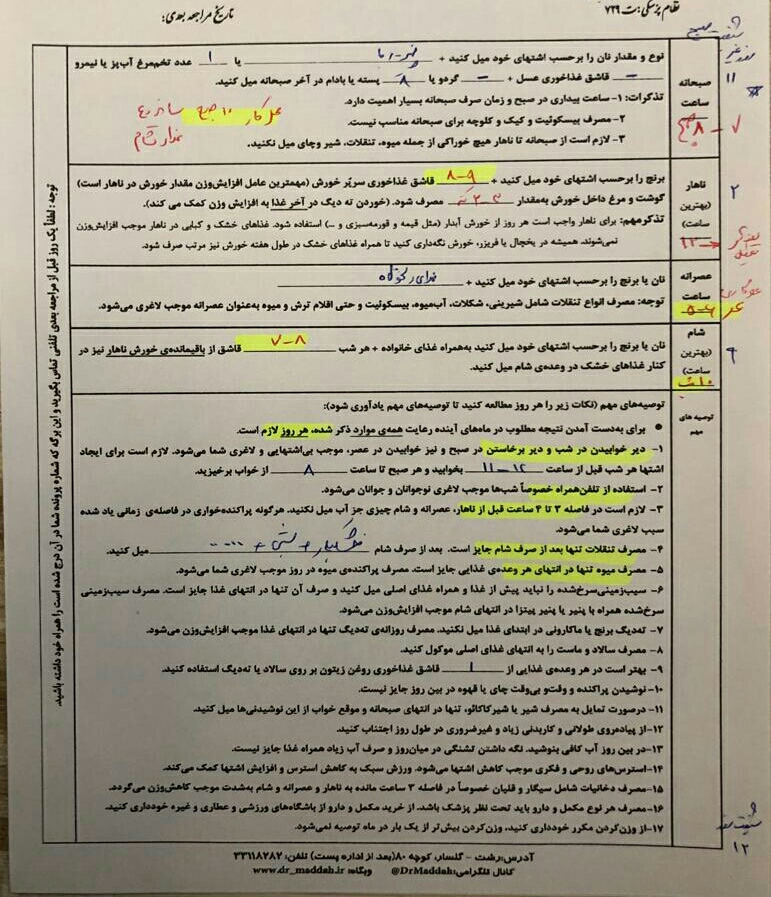 نظام پزشکی: ت ۷۲۹
تاریخ مراجعه بعدی:
صبحانه
ساعت
۷ - ۸ صبح
نوع و مقدار نان را برحسب اشتهای خود میل کنید + یا ۱ عدد تخم‌مرغ آب‌پز یا نیمرو
– قاشق غذاخوری عسل + – گردو یا ۸ پسته یا بادام در آخر صبحانه میل کنید.
تذکرات: ۱- ساعت بیداری در صبح و زمان صرف صبحانه بسیار اهمیت دارد.
۲- مصرف بیسکوئیت و کیک و کلوچه برای صبحانه مناسب نیست.
۳- لازم است از صبحانه تا ناهار هیچ خوراکی از جمله میوه، تنقلات، شیر و چای میل نکنید.
۱۰ صبح
۱۱
ناهار
(بهترین
ساعت)
۲
برنج را برحسب اشتهای خود میل کنید + ۸-۹ قاشق غذاخوری سرپُر خورش (مهمترین عامل افزایش‌وزن مقدار خورش در ناهار است)
گوشت و مرغ داخل خورش به‌مقدار مصرف شود. (خوردن ته دیگ در آخر غذا به افزایش وزن کمک می کند).
تذکرمهم: برای ناهار واجب است هر روز از خورش آبدار (مثل قیمه و قورمه‌سبزی و ...) استفاده شود. غذاهای خشک و کبابی در ناهار موجب افزایش‌وزن
نمی‌شوند. همیشه در یخچال یا فریزر، خورش نگه‌داری کنید تا همراه غذاهای خشک در طول هفته خورش نیز مرتب صرف شود.
عصرانه
ساعت
۵-۶ عصر
نان یا برنج را برحسب اشتهای خود میل کنید +
توجه: مصرف انواع تنقلات شامل شیرینی، شکلات، آب‌میوه، بیسکوئیت و حتی اقلام ترش و میوه به‌عنوان عصرانه موجب لاغری می‌شود.
شام
(بهترین
ساعت)
۹
نان یا برنج را برحسب اشتهای خود میل کنید به‌همراه غذای خانواده + هر شب ۷-۸ قاشق از باقیمانده‌ی خورش ناهار نیز در
کنار غذاهای خشک در وعده‌ی شام میل کنید.
توصیه های
مهم
توصیه‌های مهم (نکات زیر را هر روز مطالعه کنید تا توصیه‌های مهم یادآوری شود):
● برای به‌دست آمدن نتیجه مطلوب در ماه‌های آینده رعایت همه‌ی موارد ذکر شده، هر روز لازم است.
۱- دیر خوابیدن در شب و دیر برخاستن در صبح و نیز خوابیدن در عصر، موجب بی‌اشتهایی و لاغری شما می‌شود. لازم است برای ایجاد
اشتها هر شب قبل از ساعت ۱۱-۱۲ بخوابید و هر صبح تا ساعت ۸ از خواب برخیزید.
۲- استفاده از تلفن‌همراه خصوصاً شب‌ها موجب لاغری نوجوانان و جوانان می‌شود.
۳- لازم است در فاصله ۳ تا ۴ ساعت قبل از ناهار، عصرانه و شام چیزی جز آب میل نکنید. هرگونه پراکنده‌خواری در فاصله‌ی زمانی یاد شده
سبب لاغری شما می‌شود.
۴- مصرف تنقلات تنها بعد از صرف شام جایز است. بعد از صرف شام میل کنید.
۵- مصرف میوه تنها در انتهای هر وعده‌ی غذایی جایز است. مصرف پراکنده‌ی میوه در روز موجب لاغری شما می‌شود.
۶- سیب‌زمینی‌سرخ‌شده را نباید پیش از غذا و همراه غذای اصلی میل کنید و صرف آن تنها در انتهای غذا جایز است. مصرف سیب‌زمینی
سرخ‌شده همراه با پنیر یا پنیر پیتزا در انتهای شام موجب افزایش‌وزن می‌شود.
۷- ته‌دیگ برنج یا ماکارونی در ابتدای غذا میل نکنید. مصرف روزانه‌ی ته‌دیگ تنها در انتهای غذا موجب افزایش‌وزن می‌شود.
۸- مصرف سالاد و ماست را به انتهای غذای اصلی موکول کنید.
۹- بهتر است در هر وعده‌ی غذایی از ۱ قاشق غذاخوری روغن زیتون بر روی سالاد یا ته‌دیگ استفاده کنید.
۱۰- نوشیدن پراکنده و وقت‌و بی‌وقت چای یا قهوه در بین روز جایز نیست.
۱۱- درصورت تمایل به مصرف شیر یا شیرکاکائو، تنها در انتهای صبحانه و موقع خواب از این نوشیدنی‌ها میل کنید.
۱۲- از پیاده‌روی طولانی و کاربدنی زیاد و غیرضروری در طول روز اجتناب کنید.
۱۳- در بین روز آب کافی بنوشید. نگه داشتن تشنگی در میان‌روز و صرف آب زیاد همراه غذا جایز نیست.
۱۴- استرس‌های روحی و فکری موجب کاهش اشتها می‌شود. ورزش سبک به کاهش استرس و افزایش اشتها کمک می‌کند.
۱۵- مصرف دخانیات شامل سیگار و قلیان خصوصاً در فاصله ۳ ساعت مانده به ناهار و عصرانه و شام به‌شدت موجب کاهش‌وزن می‌گردد.
۱۶- مصرف هر نوع مکمل و دارو باید تحت نظر پزشک باشد. از خرید مکمل و دارو از باشگاه‌های ورزشی و عطاری و غیره خودداری کنید.
۱۷- از وزن‌کردن مکرر خودداری کنید، وزن‌کردن بیش‌تر از یک بار در ماه توصیه نمی‌شود.
۱۲
توجه: لطفاً یک روز قبل از مراجعه بعدی تلفنی تماس بگیرید و این برگه که شماره پرونده شما در آن درج شده است را همراه خود داشته باشید.
آدرس: رشت - گلسار، کوچه ۸۰ (بعد از اداره پست) تلفن: ۳۳۱۱۸۲۸۲
کانال تلگرامی: @DrMaddah وبگاه: www.dr_maddah.ir